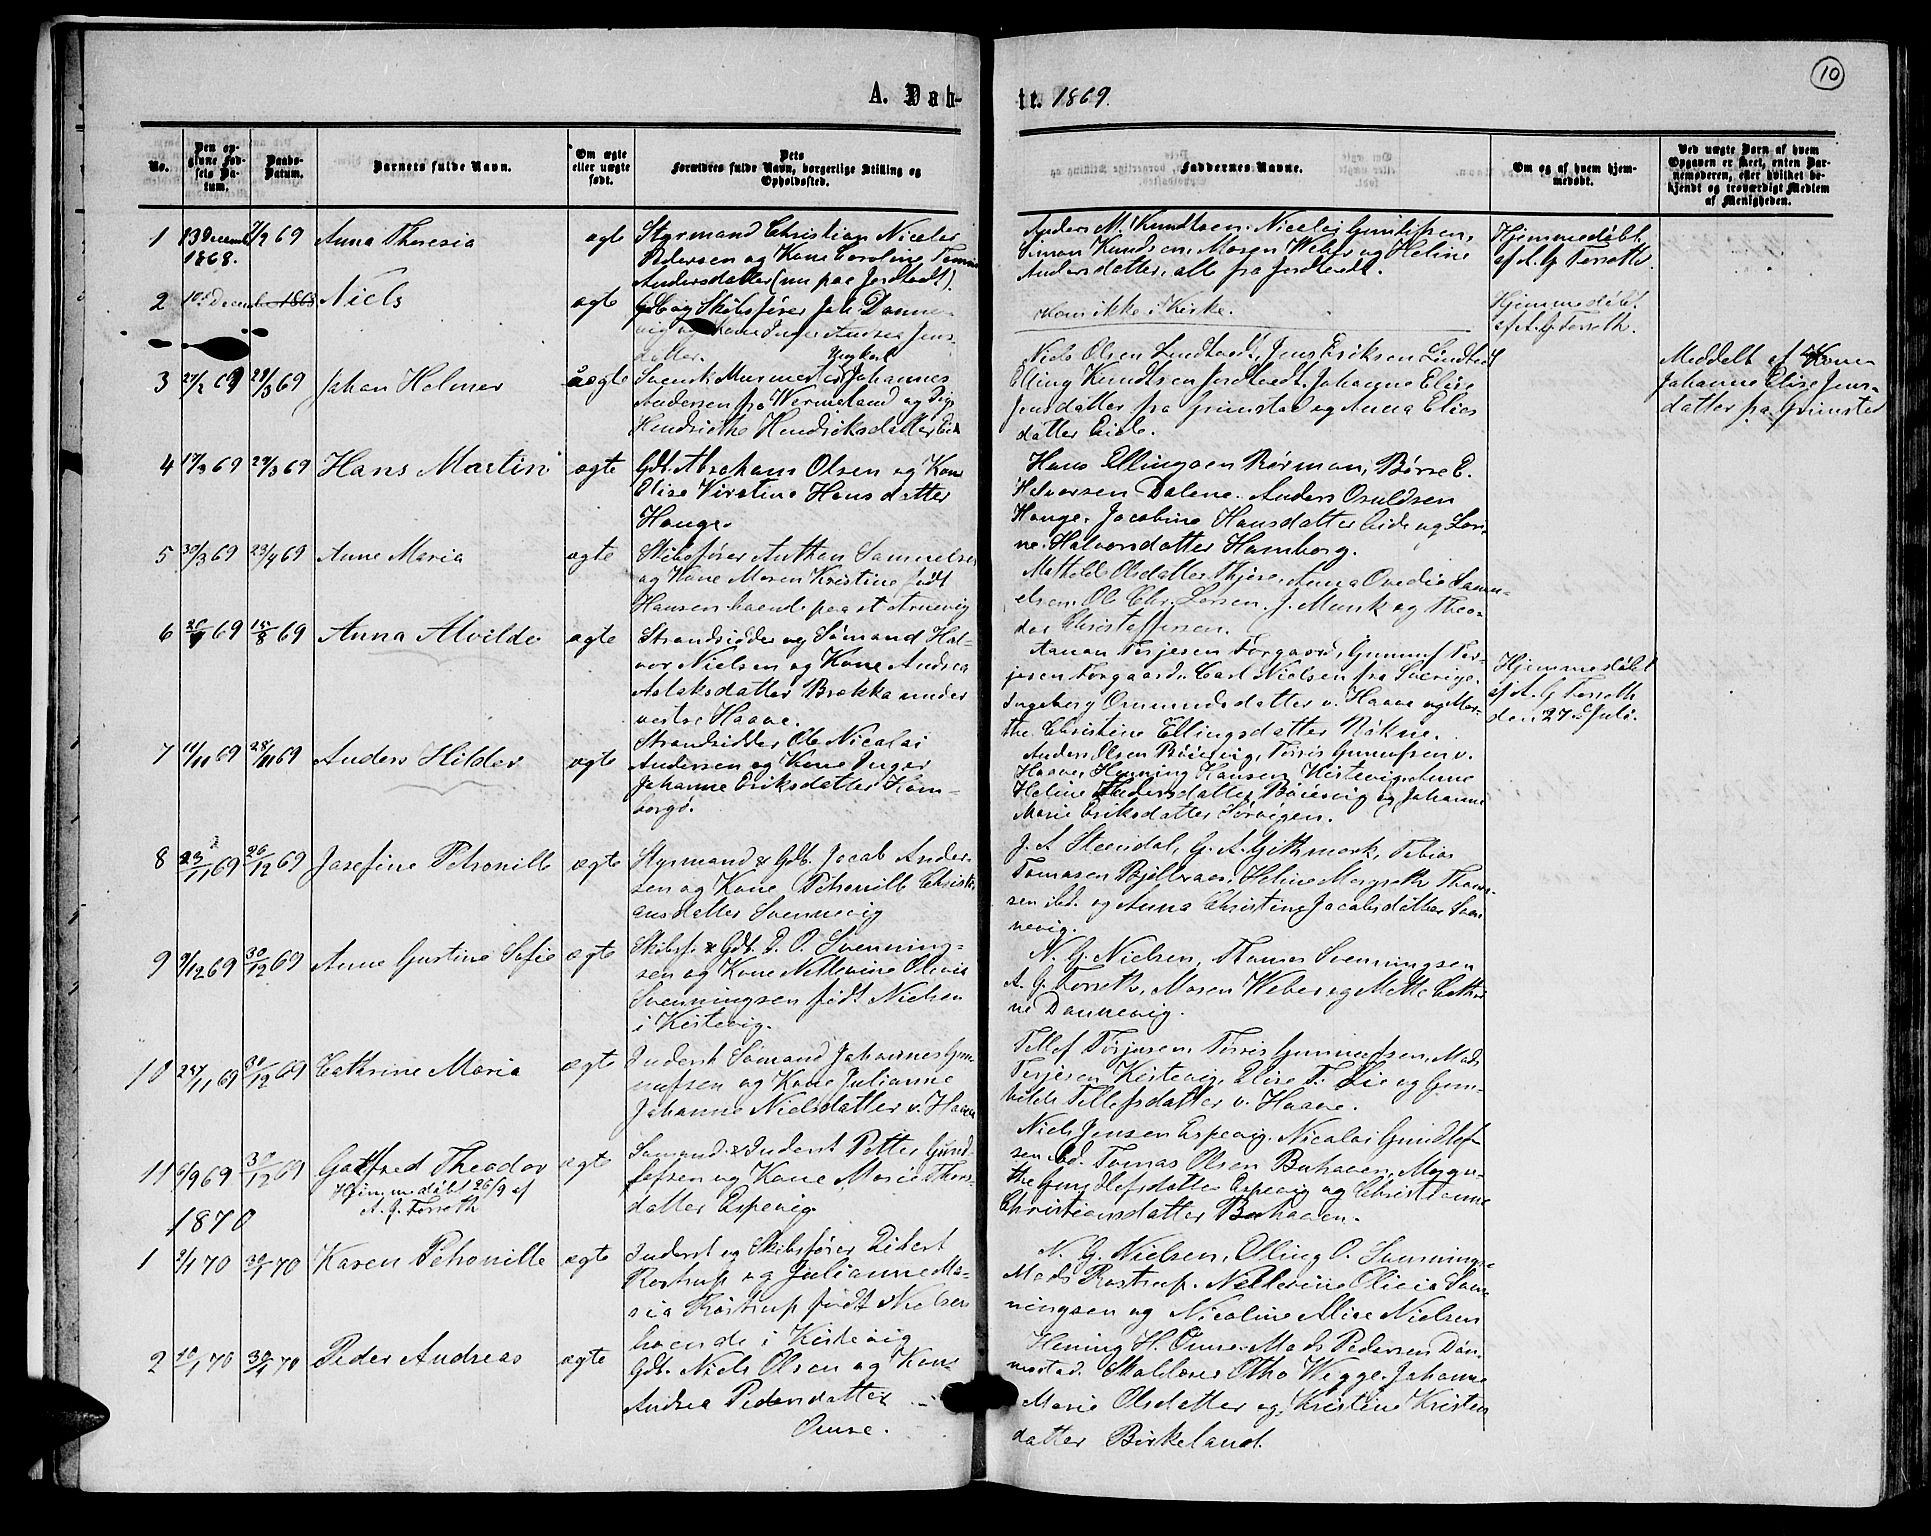 10
A. Dåb-
tt. 1869.
No.
Den op-
givne Fød-
sels Da-
tum.
Daabs-
Datum.
Barnets fulde Navn.
Om ægte
eller uægte
født.
Dets
Forældres fulde Navn, borgerlige Stilling og
Opholdssted.
Faddernes Navne.
Om og af hvem hjem-
medøbt.
Ved uægte Barn af hvem
Opgaven er skeet, enten Bar-
nemoderen, eller hvilket be-
kjendt og troværdigt Medlem
af Menigheden.
1 13 Decemb 1868. 7/2 69 Anna Theresia ægte
Styrmand Christian Nicolai
Pedersen og Kone Caroline
Andersdatter (nu paa Jordtvedt).
Anders M. Knudtsen. Nicolai
Simon Knudsen, Maren Weber og Heline
Andersdatter, alle fra Jordtvedt.
Hjemmedøbt
af A. G. Torseth.
2 Niels ægte
Skibsfører Joh. Danne-
vig og Kone Andrea Jens-
datter.
ikke i Kirke.
Hjemmedøbt
af A. G. Torseth.
3 27/2 69 29/3 69 Johan Holmer uægte
Svensk Johannes
Andersen fra Wermeland og Pige
Hendriethe Hendriksdatter Eide
Niels Olsen Lindtvedt, Jens Eriksen Lindtvedt
Elling Knudtsen Jordtvedt. Johanne Elise
Jensdatter fra Grimstad og Anna Elies
datter Eide.
Meddelt af Kone
Johanne Elise Jens-
datter fra Grimsted
4 17/3 69 29/3 69 Hans Martin ægte
Gdb. Abraham Olsen og Kone
Elise Kirstine Hansdatter
Hauge.
Hans Ellingsen Rørman, Børre E.
Halvorsen Dalene. Anders Osuldsen
Hauge. Jacobine Hansdatter Eide og Lov-
ne Halvorsdatter Hamborg.
5 30/3 69 23/4 69 Anne Maria ægte
Skibsfører Anthon Samuelsen
og Kone Maren Kristine født
Hansen boende paa st Aruevig
Mathilde Olsdatter Anna Ovedie Samu-
elsen. Ole Chr. Larsen. J. Munk og Theo-
dor Christoffersen.
6 69 15/8 69 Anna Alvilde ægte
Strandsidder og Sømand Hal-
vor Nielsen og Kone Andrea
Aslaksdatter Brekka under
vestre Haave.
Aanon Terjesen Torgaard, Gunnuf Ter-
jesen Torgaard. Carl Nielsen fra Sverige.
Ingeborg Osmundsdatter v. Haave og Mar-
the Christine Ellingsdatter Røkne.
Hjemmedøbt
af A. G. Torseth
den 27de Juli.
7 11/11 69 28/11 69 Anders Hilder ægte
Strandsidder Ole Nicolai
Andersen og Kone Inger
Johanne Eriksdatter Ham-
borgø.
Anders Olsen Bøievig, Torris Gunnufsen v.
Haave, Henning Hansen Kistevig. Anne
Heline Andersdatter Bøievig og Johanne
Marie Eriksdatter Sørvigen.
8 23/11 69 26/12 69 Josefine Petronille ægte
Styrmand & Gdb. Jacob Ander-
sen og Kone Petronille Christi-
ansdatter Svennevig
J. A. Steindal, G. A. Githmark, Tobias
Tomasen Helene Margrethe Thom-
sen ibd. og Anna Christine Jacobsdatter Sven-
nevig.
9 9/12 69 30/12 69 Anne Gustine Sofie ægte
Skibsf. & Gdb. P. O. Svenning-
sen og Kone Nellevine Olivia
Svenningsen født Nielsen
i Kistevig.
N. G. Nielsen, Thomas Svenningsen
A. G. Torseth, Maren Weber og Mette Cathri-
ne Dannevig.
10 28/11 69 30/12 69 Cathrine Maria ægte
Inderst Sømand Johannes Gun-
nufsen og Kone Julianne
Johanne Nielsdatter v. Haave
Tellef Terjesen, Torris Gunnufsen, Mads
Terjesen Kistevig, Elise T. Lie og Gun-
hilde Tellefsdatter v. Haave.
11 6/9 69 30/12 69 Gotfred Theodor ægte
Hjemmedøbt 26/9 af
A. G. Torseth
Sømand & Inderst Petter Gund-
lefsen og Kone Maria Thors-
datter Espevig.
Niels Jensen Espevig. Nicolai Gundlef-
sen ibd. Tomas Olsen Buhaven, Margre-
the Gundlefsdatter Espevig og Christianne
Christiansdatter Buhaven.
1870
1 9/1 70 30/1 70 Karen Petronille ægte
Inderst og Skibsfører Eilert
Rostrup og Julianne Ma-
ria Rostrup født Nielsen
boende i Kistevig
N. G. Nielsen, Elling O. Svennings-
Mads Rostrup. Nellevine Olivia Sven-
ningsen og Nicoline Alise Nielsen
2 10/1 70 30/1 70 Peder Andreas ægte
Gdb. Niels Olsen og Kone
Andrea Pedersdatter
Omre.
Hening H. Omre. Mads Pedersen Døn-
nestad. Skolelærer Otho Wigge. Johanne
Marie Olsdatter og Kristine Kristen
datter Birkeland.